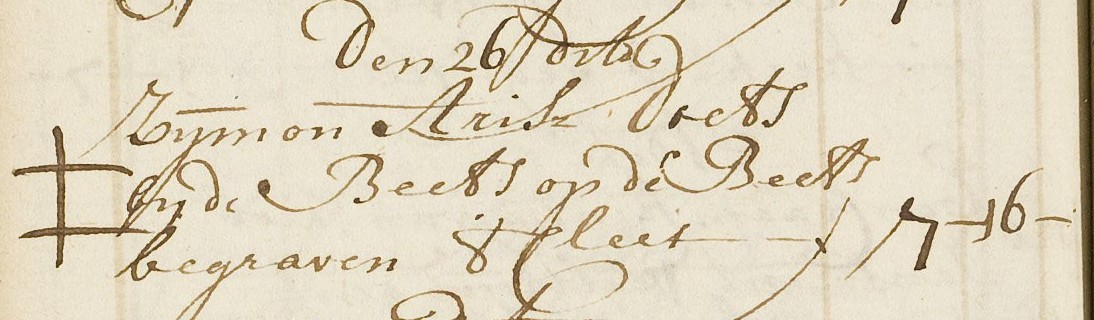 Den 26 dito
Zymon Arisz Doets
in de Beets op de Beets
begraven 8 kleet 7-16-